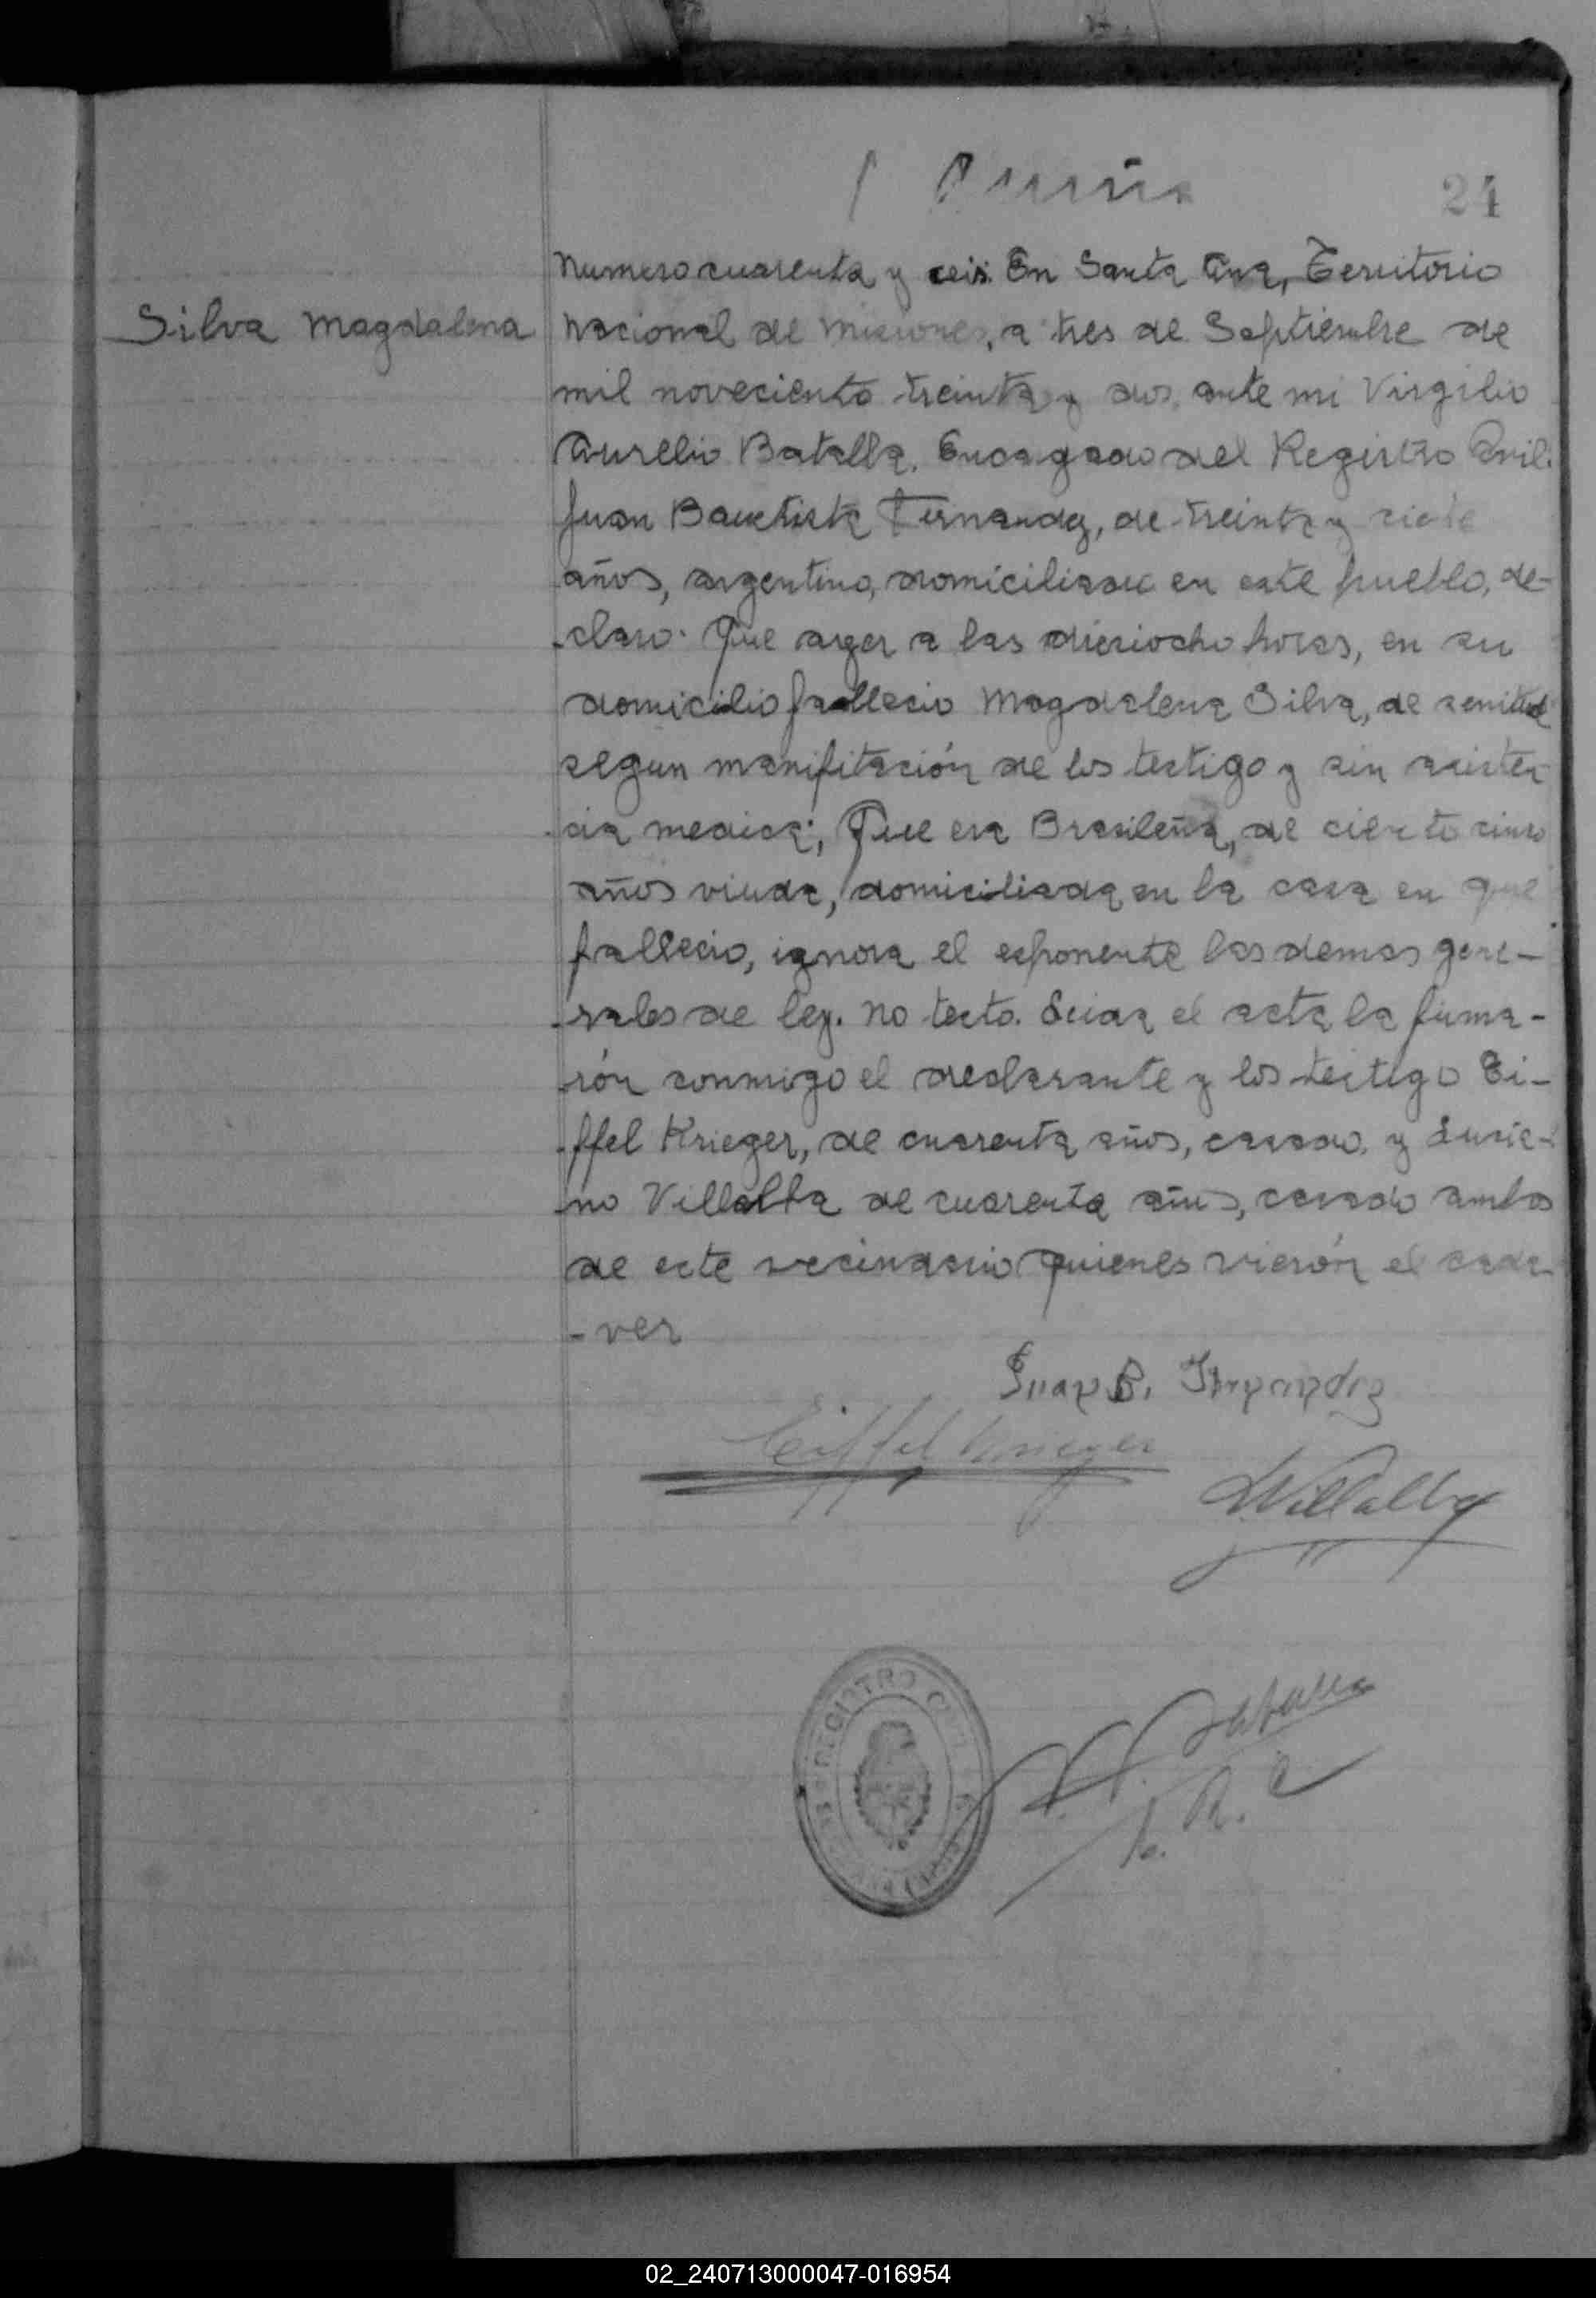 24
Numero cuarenta y seis. En Santa Ana, Territorio
Silva Magdalena
Nacional de Misiones, a tres de Septiembre de
mil noveciento treinta y dos, ante mi Virgilio
Aurelio Batalla. Encargado del Registro Civil.
Juan Bauctista Fernandez, de treinta y siete
años, argentino, domiciliado en este pueblo, de-
-claro. Que ayer a las dieciocho horas, en su
domicilio fallecio Magdalena Silva, de senitud
segun manifitación de los testigo y sin asisten
cia medica; Que era Brasileña, de ciento cinco
años viuda, domiciliada en la casa en que
fallecio, ignora el esponente las demas gene-
-rales de ley. No testo. Leida el acta la firma-
-rón conmigo el declarante y los testigo Ei-
-ffel Krieger, de cuarenta años, casado, y Lucia-
no Villalba de cuarenta años, casado ambos
de este vecindario quienes vierón el cada
-ver
Juan B. Fernandez
Eiffel Krieger
L. Villalba
REGISTRO CIVIL
E. R. C
02_240713000047-016954